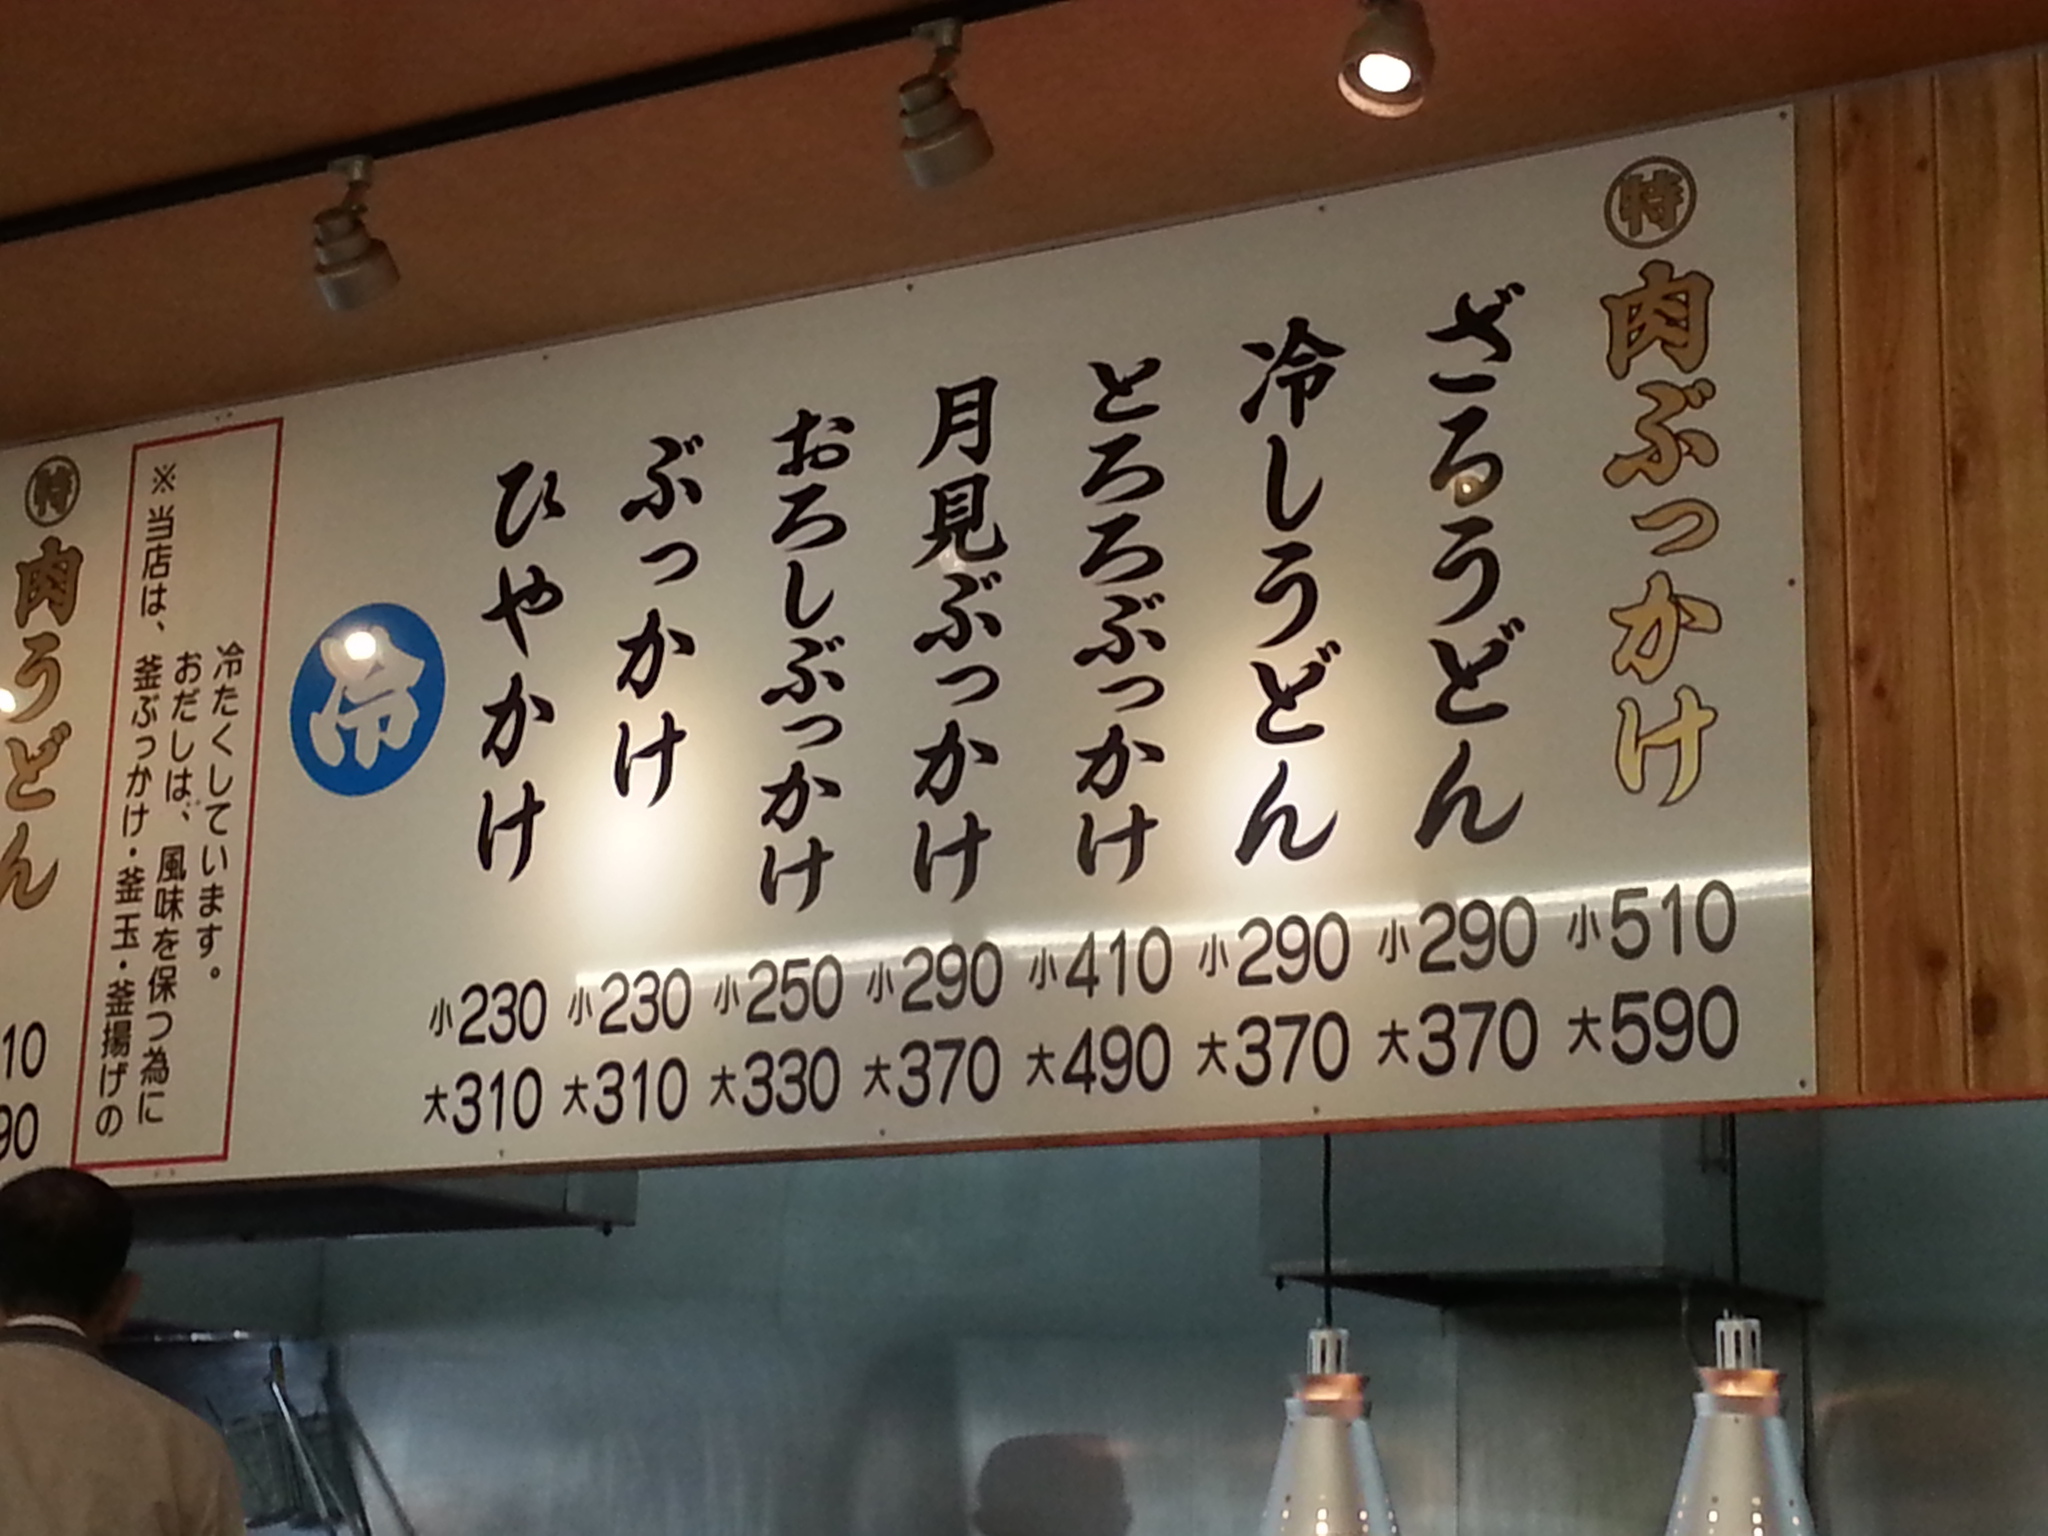 特 肉ぶっかけ
小510
大590
ざるうどん
小290
大370
冷しうどん
小290
大370
とろろぶっかけ
小410
大490
月見ぶっかけ
小290
大370
おろしぶっかけ
小250
大330
ぶっかけ
小230
大310
ひやかけ
小230
大310
冷
※当店は、釜ぶっかけ・釜玉・釜揚げの
おだしは、風味を保つ為に
冷たくしています。
特 肉うどん
10
90